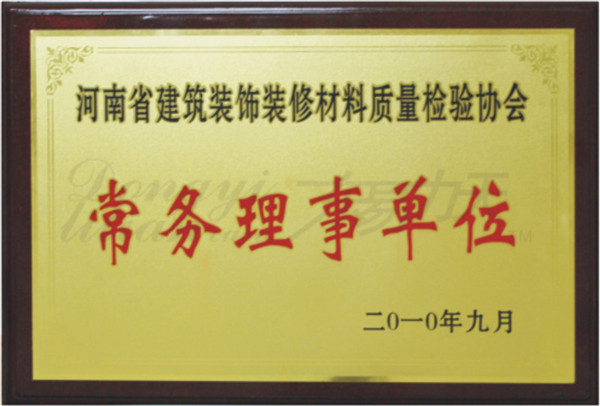 河南省建筑装饰装修材料质量检验协会
常务理事单位
二0一0年九月